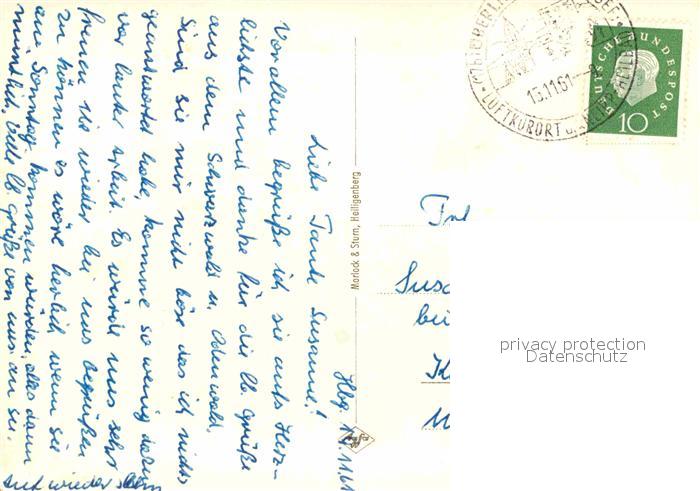 Hbg. 13.11.61
Liebe Tante Susanne!
Vor allem begrüße ich sie aufs Herz-
lichste und danke für die lb. Grüße
aus dem Schwarzwald u. Odenwald.
Sind sie mir nicht böse das ich nichts
geantwortet habe, komme so wenig dazu
vor lauter Arbeit. Es würde uns sehr
freuen Sie wieder bei uns begrüßen
zu können es wäre herlich wenn sie
am Sonntag kommen würden, alles dann
mündlich. Viele lb. Grüße von uns an sie.
Auf wieder sehen
Morlock & Sturm, Heiligenberg
13.11.61
LUFTKURORT
DEUTSCHE BUNDESPOST
10
Susa
bei
K
privacy protection
Datenschutz